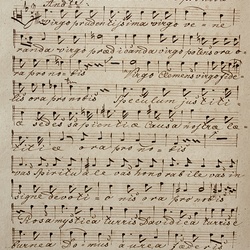 Andte
Virgo prudentissima virgo vene
randa virgo prædicanda virgo potens ora o
ra pro nobis Virgo Clemens virgo fide
lis ora pro nobis Speculum justiti
æ sedes sapientiæ Causa nostræ læ
titiæ ora pro nobis
vas spirituale vas honorabile vas in
signe devotionis ora pro nobis
Rosa mystica turris Davidica turris
burnea Domus aurea fœderis